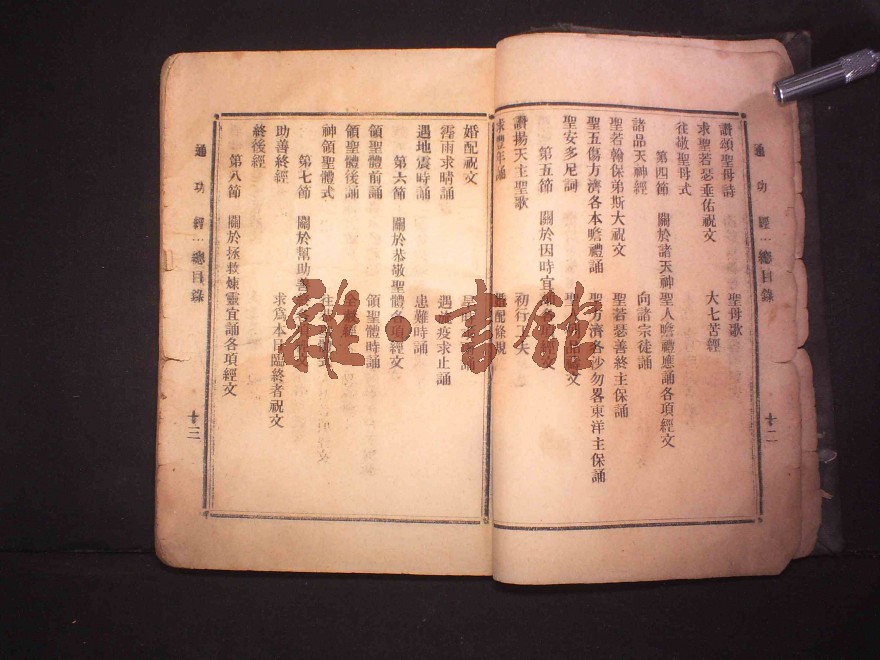 通功經⋯總目錄
十二
讚頌聖母詩 聖母歌
求聖若瑟垂佑祝文 大七苦經
往敬聖母式
第四節 關於諸天神聖人瞻禮應誦各項經文
諸品天神經 向諸宗徒誦
聖若翰保弟斯大祝文 聖若瑟善終主保誦
聖五傷方濟各本瞻禮誦 聖方濟各沙勿畧東洋主保誦
聖安多尼詞
第五節 關於因時宜
讚揚天主聖歌 初行工夫
求豐年誦
婚配條規
婚配祝文
霪雨求晴誦 遇瘟疫求止誦
遇地震時誦 患難時誦
第六節 關於恭敬聖體各項經文
領聖體前誦 領聖體時誦
領聖體後誦
神領聖體式
第七節 關於幫助善
助善終經 求為本日臨終者祝文
終後經
第八節 關於拯救煉靈宜誦各項經文
通功經⋯總目錄
十三
雜·書館